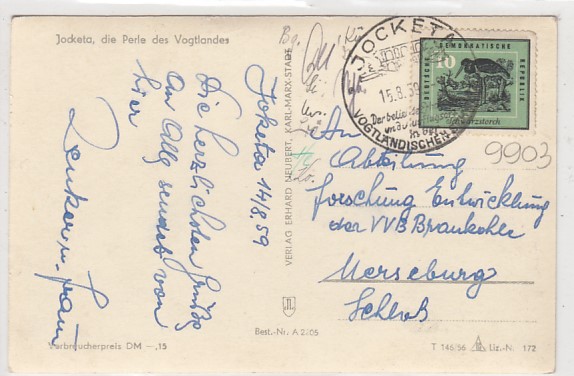 Jocketa, die Perle des Vogtlandes
Joketa 14/8.59
Die herzlichsten Grüße
an Alle sendet von
hier
u. Frau
Verbraucherpreis DM –,15
Best.-Nr. A 2/05
VERLAG ERHARD NEUBERT, KARL-MARX-STADT
JOCKETA
15.8.59
Der beliebte
in der
VOGTLÄNDISCHEN
DEUTSCHE DEMOKRATISCHE REPUBLIK
10
Schwarzstorch
9903
An
Abteilung
Forschung Entwicklung
der VVB Braunkohle
Merseburg
Schloß
T 146/56 Liz.-N. 172